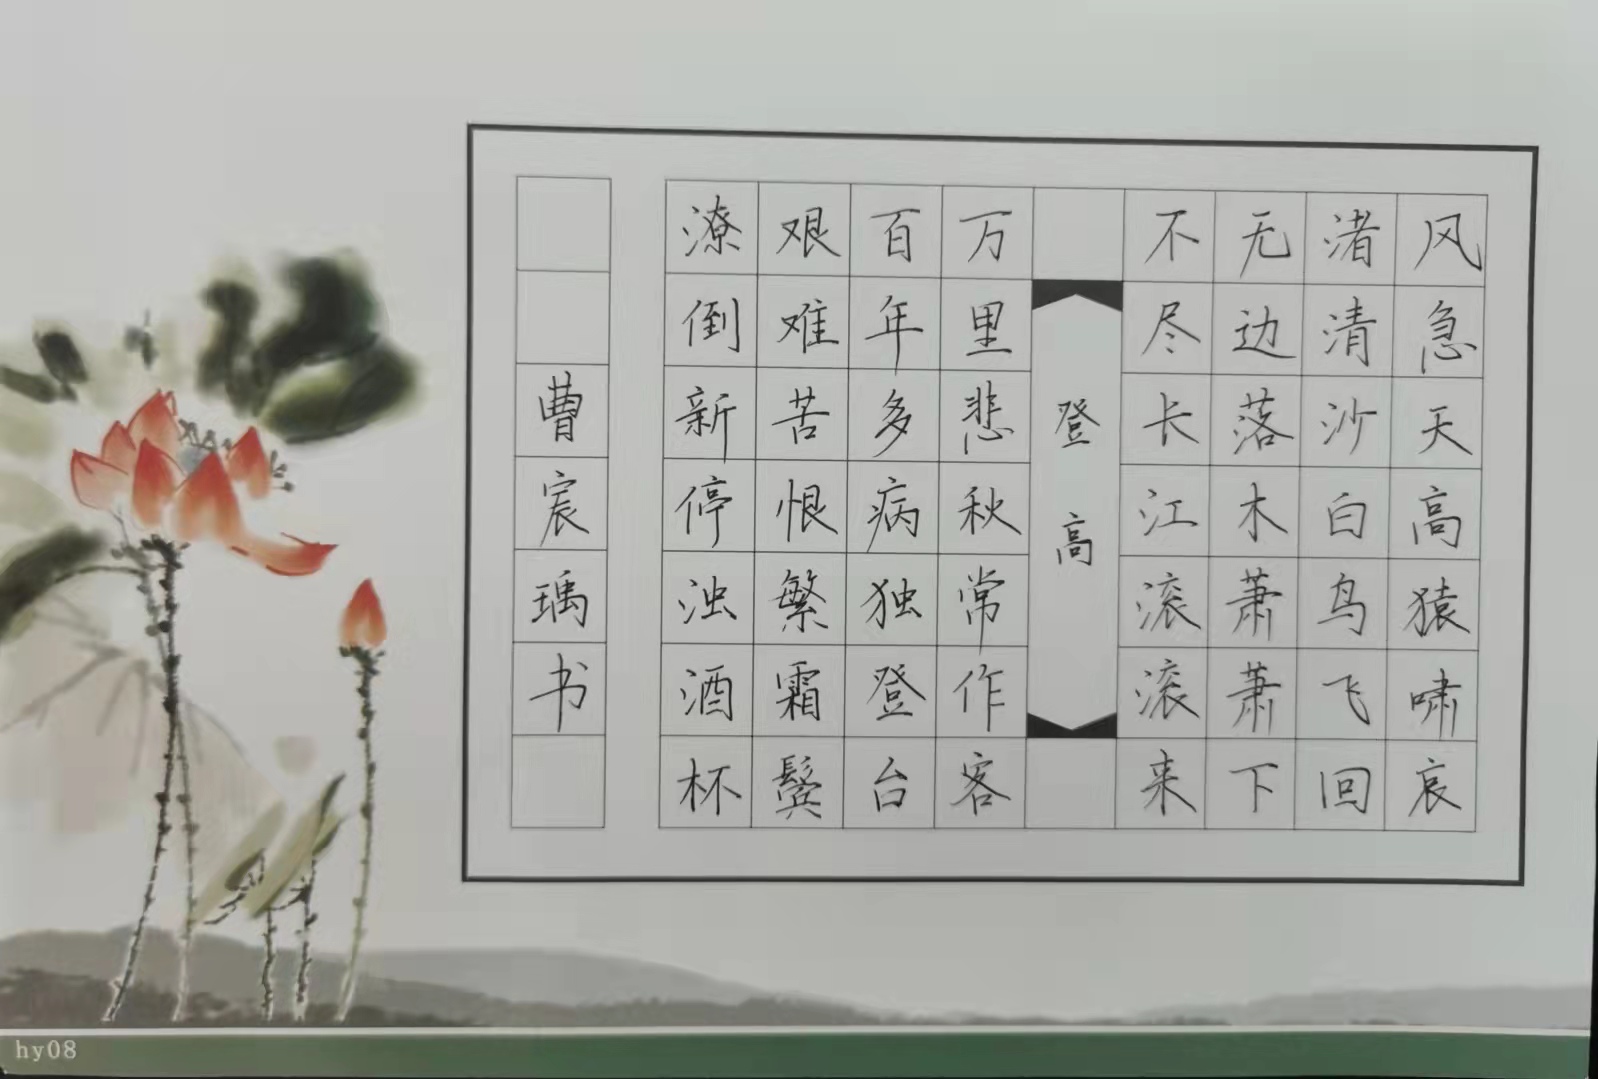 风急天高猿啸哀
渚清沙白鸟飞回
无边落木萧萧下
不尽长江滚滚来
登高
万里悲秋常作客
百年多病独登台
艰难苦恨繁霜鬓
潦倒新停浊酒杯
曹宸瑀书
hy08